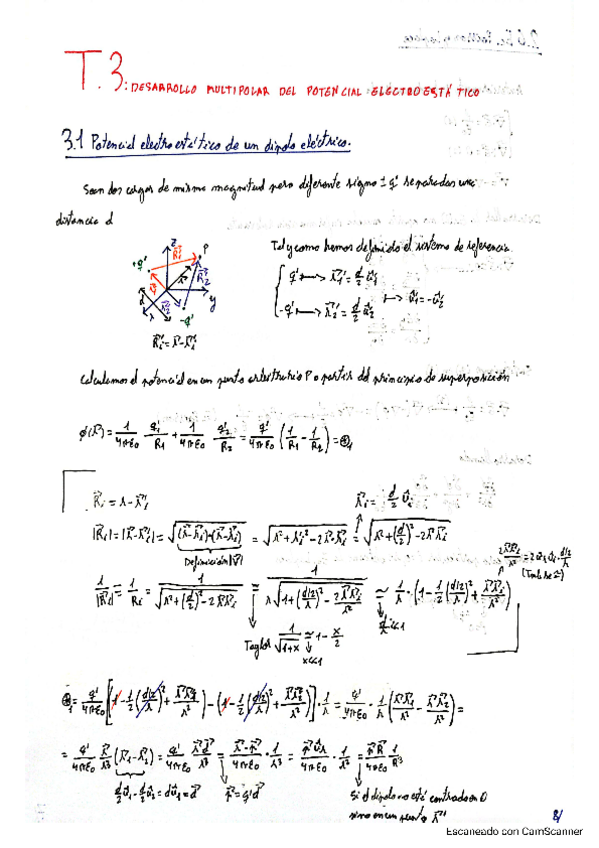 T.3: DESARROLLO MULTIPOLAR DEL POTENCIAL ELECTROESTÁTICO
3.1 Potencial electroestático de un dipolo eléctrico.
Sean dos cargas de misma magnitud pero diferente signo ± q' separadas una
distancia d
Tal y como hemos definido el sistema de referencia
+q' z P
q' ⟼ r⃗₁' = d/2 û₁
-q' ⟼ r⃗₂' = d/2 û₂ ⟼ û₁ = -û₂
y
-q'
R⃗ᵢ = r⃗ - r⃗ᵢ'
Calculamos el potencial en un punto arbitrario P a partir del principio de superposición
ϕ(r⃗) = 1/4πε₀ q₁'/R₁ + 1/4πε₀ q₂'/R₂ = q'/4πε₀ (1/R₁ - 1/R₂) = ⊛₁
R⃗ᵢ = r - r⃗ᵢ' r⃗ᵢ' = d/2 ûᵢ
|R⃗ᵢ| = |r⃗ - r⃗ᵢ'| = √((r⃗ - r⃗ᵢ')·(r⃗ - r⃗ᵢ')) = √(r² + rᵢ'² - 2r⃗·r⃗ᵢ') = √(r² + (d/2)² - 2r⃗·r⃗ᵢ')
Definición |v⃗|
1/|R⃗ᵢ| = 1/Rᵢ = 1/√(r² + (d/2)² - 2r⃗r⃗ᵢ') = 1/(r√(1 + ((d/2)/r)² - 2r⃗r⃗ᵢ'/r²)) ≃ 1/r · (1 - 1/2((d/2)/r)² + r⃗r⃗ᵢ'/r²)
Taylor 1/√(1+x) ≃ 1 - x/2
x<<1
d/r <<1
⊛₁ = q'/4πε₀ [(1 - 1/2((d/2)/r)² + r⃗r⃗₁'/r²) - (1 - 1/2((d/2)/r)² + r⃗r⃗₂'/r²)] · 1/r = q'/4πε₀ · 1/r (r⃗r⃗₁'/r² - r⃗r⃗₂'/r²) =
= q'/4πε₀ r⃗/r³ (r⃗₁' - r⃗₂') = q'/4πε₀ r⃗d⃗/r³ = r⃗·p⃗/4πε₀ · 1/r³ = p⃗ûᵣ/4πε₀ · 1/r² = p⃗R⃗/4πε₀ 1/R³
d/2 û₁ - d/2 û₂ = dû₁ = d⃗ p⃗ = q'd⃗
Si el dipolo no está centrado en O
sino en un punto r⃗'
8/
Escaneado con CamScanner